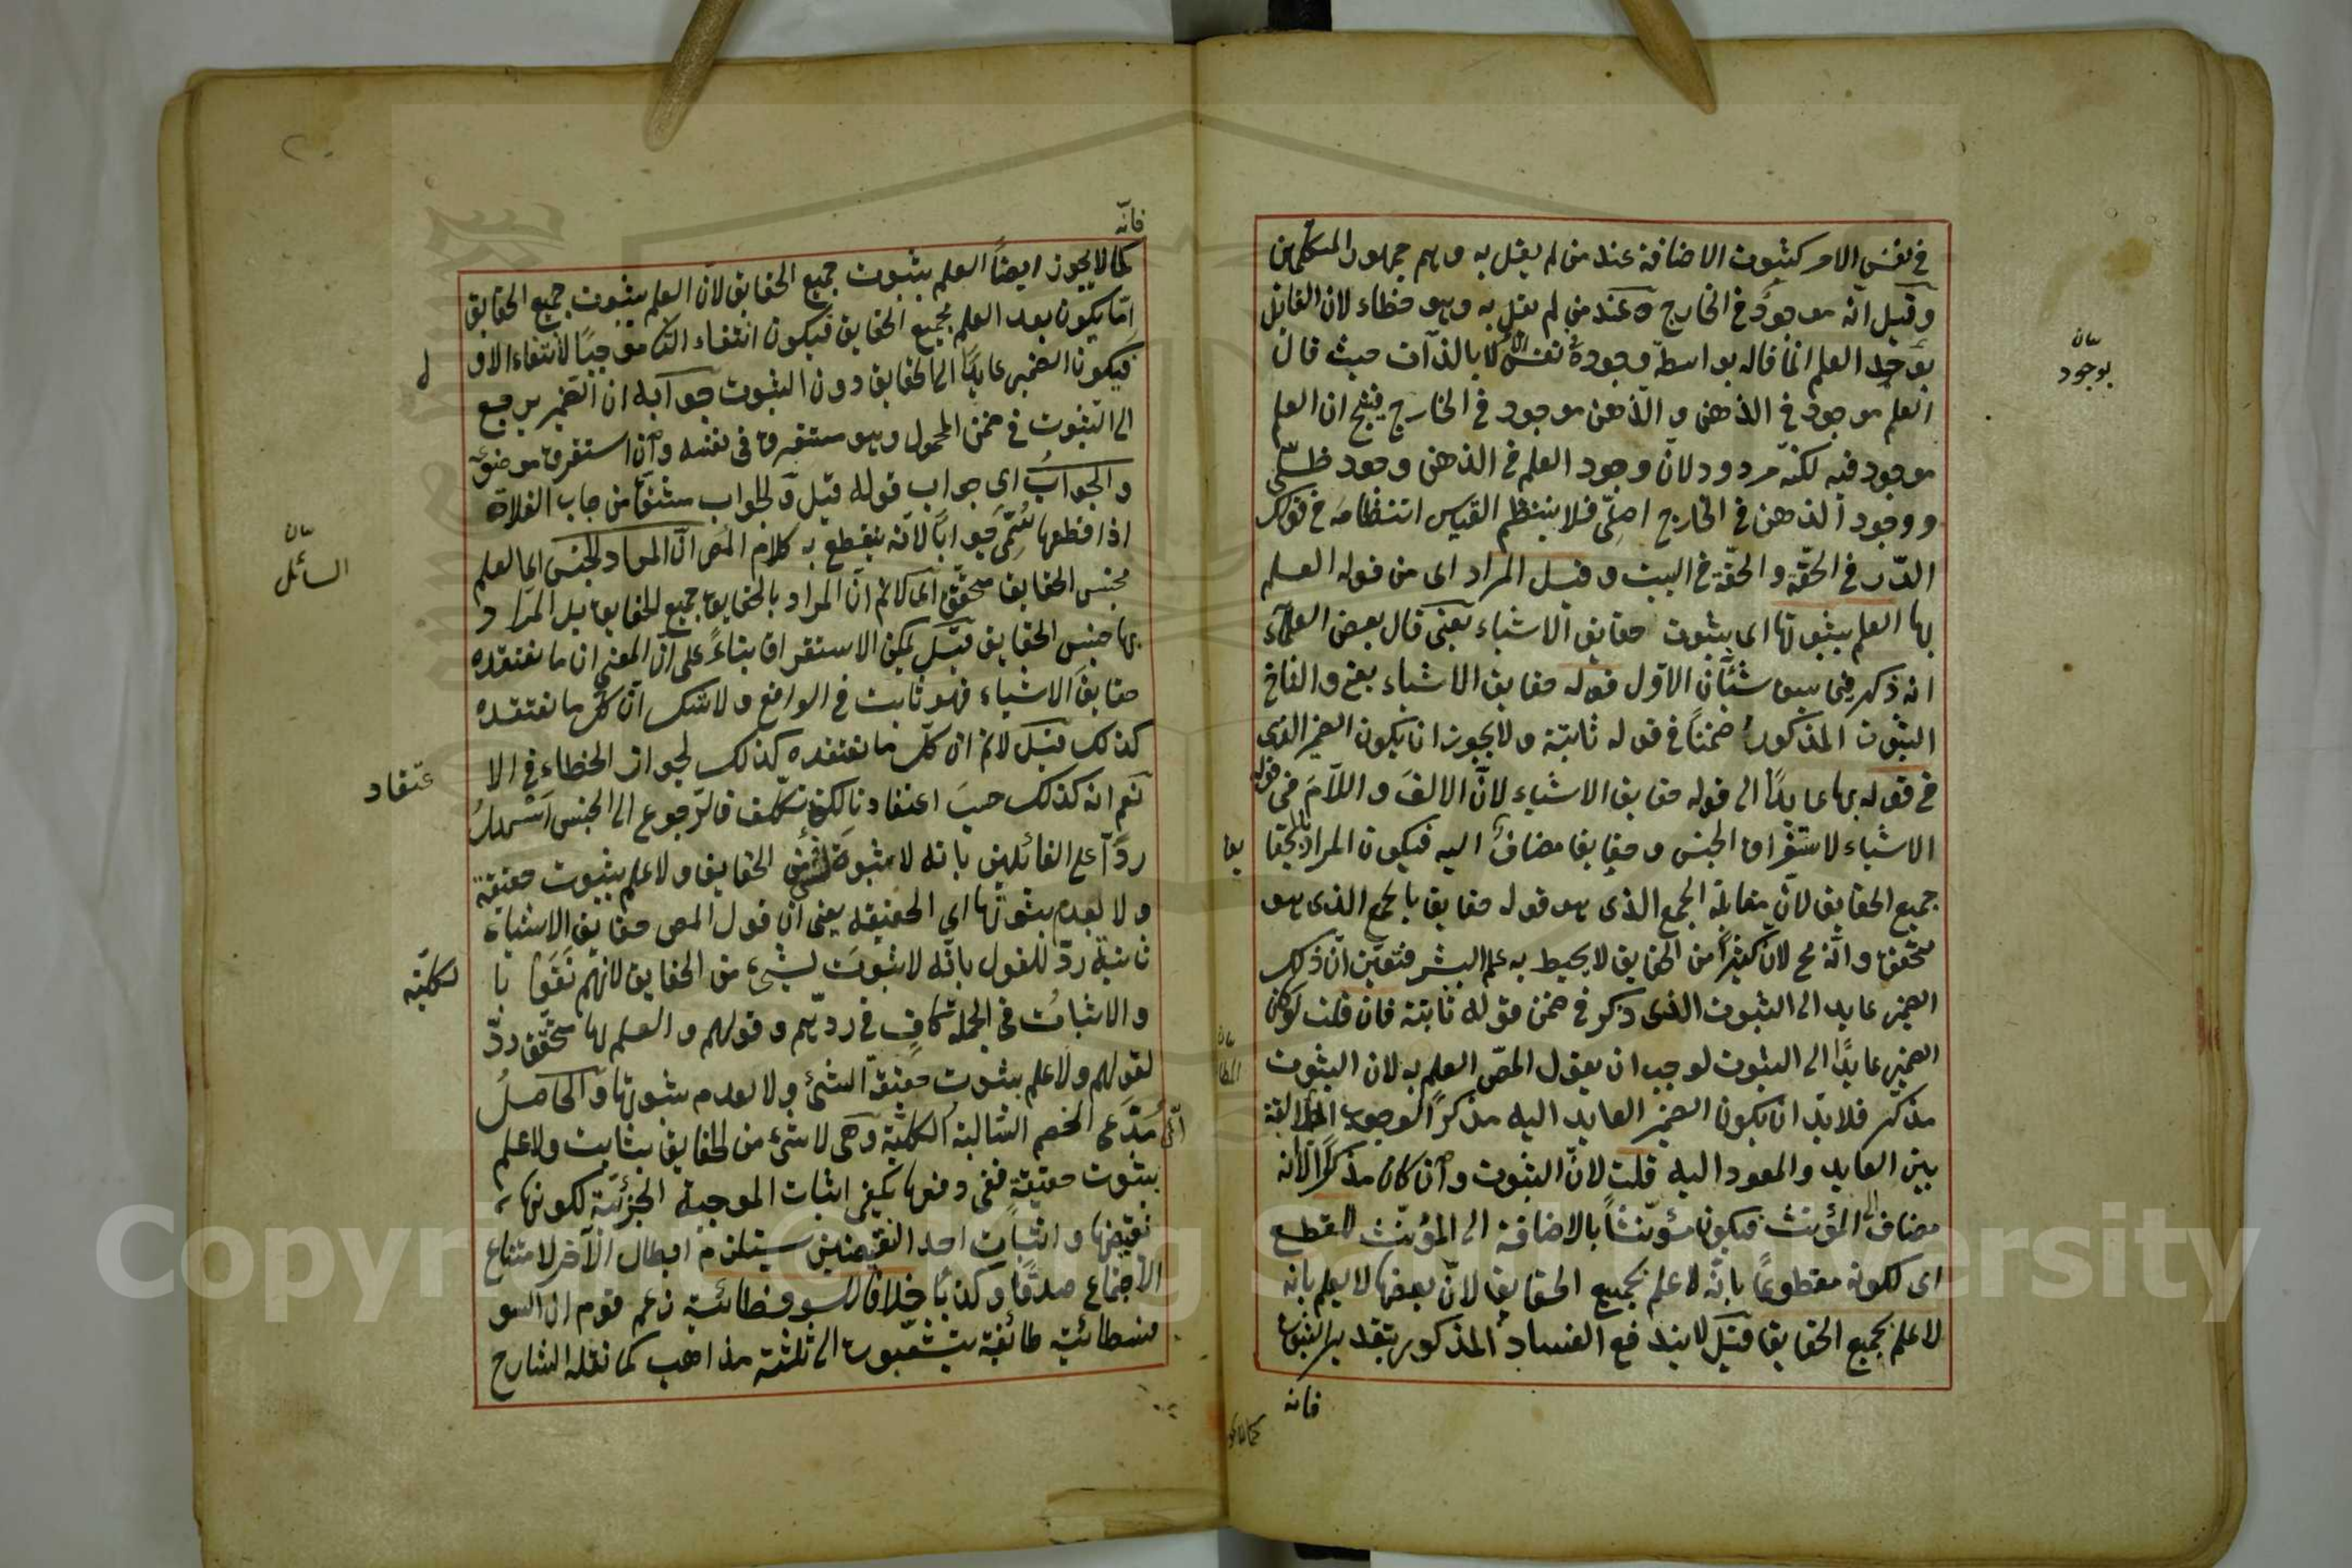 في نفس الامر كثبوت الاضافة عند من لم يقل به وهم جمهور المتكلمين
وقيل انه موجود في الخارج عند من لم يقل به وهو خطاء لان القائل
بوجد العلم انما قاله بواسطة وجوده في نفس الامر لا بالذات حيث قال
العلم موجود في الذهن والذهن موجود في الخارج فينتج ان العلم
موجود فيه لكنه مردود لان وجود العلم في الذهن وجود ظلي
ووجود الذهن في الخارج اصلي فلا ينتظم القياس انتظامه في قولك
الدر في الحقة والحقة في البيت وقيل المراد اى من قوله العلم
بها العلم بثبوتها اى بثبوت حقايق الاشياء يعني قال بعض العلماء
انه ذكر فيما سبق شيئان الاول قوله حقايق الاشياء يعني والثاني
الثبوت المذكور ضمنا في قوله ثابتة ولا يجوز ان يكون الضمير الذى
في قوله بها عايدا الى قوله حقايق الاشياء لان الالف واللام في قوله
الاشياء لاستغراق الجنس وحقايق مضاف اليه فيكون المراد بالحقا
يق
جميع الحقايق لان مقابلة الجمع الذى هو قوله حقايق بالجمع الذى هو
متحقق وانه مح لان كثيرا من الحقايق لا يحيط به علم البشر فتعين ان ذلك
الضمير عايد الى الثبوت الذى ذكر في ضمن قوله ثابتة فان قلت لو كان
الضمير عايدا الى الثبوت لوجب ان يقول المص العلم به لان الثبوت
مذكر فلا بد ان يكون الضمير العايد اليه مذكرا لوجوب المطابقة
بين العايد والمعود اليه قلت لان الثبوت وان كان مذكرا لانه
مضاف الى المؤنث فيكون مؤنثا بالاضافة الى المؤنث للقطع
اى لكونه مقطوعا بانه لا علم بجميع الحقايق لان بعضها لا يعلم بانه
لا علم بجميع الحقايق قيل لا يندفع الفساد المذكور بتقدير الثبوت
فانه
بيان
بوجود
فانه
كما لا يجوز ايضا العلم بثبوت جميع الحقايق لان العلم بثبوت جميع الحقايق
انما يكون بعد العلم بجميع الحقايق فيكون انتفاء الثا موجبا لانتفاء الاو
ل
فيكون الضمير عايدا الى الحقايق دون الثبوت جوابه ان الضمير يرجع
الى الثبوت في ضمن المحمول وهو مستغرق في نفسه وان استغرق موضوعه
والجواب اى جواب قوله قيل والجواب مشتق من جاب الفلاة
اذا قطعها سمي جوابا لانه ينقطع به كلام المص ان المراد الجنس اى العلم
بجنس الحقايق متحقق اى لا نم ان المراد بالحقايق جميع الحقايق بل المراد
بها جنس الحقايق قيل يمكن الاستغراق بناء على ان المعنى ان ما نعتقده
حقايق الاشياء فهو ثابت في الواقع ولا شك ان كل ما نعتقده
كذلك قيل لا نم ان كل ما نعتقده كذلك لجواز الخطاء في الا
عتقاد
نعم انه كذلك حسب اعتقادنا لكنه تكلف فالرجوع الى الجنس اسهل
ردا على القائلين بانه لا ثبوت لشئ من الحقايق ولا علم بثبوت حقيقة
ولا بعدم ثبوتها اى الحقيقة يعني ان قول المص حقايق الاشياء
ثابتة رد للقول بانه لا ثبوت لشئ من الحقايق لانهم نفوا با
لكلية
والاثبات في الجملة كاف في ردهم وقولهم والعلم بها متحقق رد
لقولهم ولا علم بثبوت حقيقة الشئ ولا بعدم ثبوتها والحاصل
ان مدعى الخصم السالبة الكلية وهى لا شئ من الحقايق بثابت ولا علم
بثبوت حقيقة ففي دفعها يكفي اثبات الموجبة الجزئية لكونها
نقيضها واثبات احد النقيضين يستلزم ابطال الآخر لامتناع
الاجتماع صدقا وكذبا خلافا للسوفسطائية زعم قوم ان السو
فسطائية طائفة يتشعبون الى ثلثة مذاهب كما نقله الشارح
بيان
السائل
Copyright © King Saud University